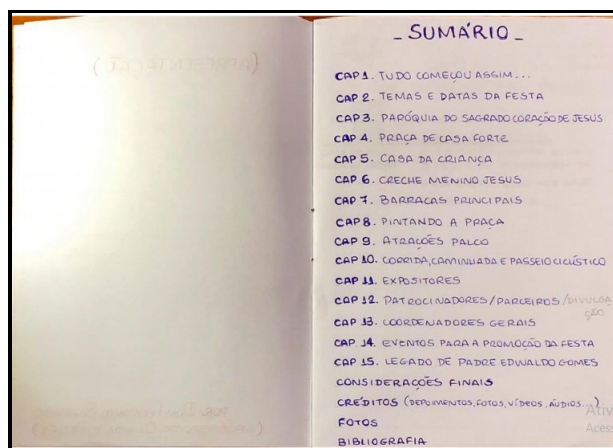 (APRESENTAÇÃO)
_ SUMÁRIO _
CAP 1. TUDO COMEÇOU ASSIM...
CAP 2. TEMAS E DATAS DA FESTA
CAP 3. PARÓQUIA DO SAGRADO CORAÇÃO DE JESUS
CAP 4. PRAÇA DE CASA FORTE
CAP 5. CASA DA CRIANÇA
CAP 6. CRECHE MENINO JESUS
CAP 7. BARRACAS PRINCIPAIS
CAP 8. PINTANDO A PRAÇA
CAP 9. ATRAÇÕES PALCO
CAP 10. CORRIDA, CAMINHADA E PASSEIO CICLÍSTICO
CAP 11. EXPOSITORES
CAP 12. PATROCINADORES/PARCEIROS/DIVULGA
ÇÃO
CAP 13. COORDENADORES GERAIS
CAP. 14. EVENTOS PARA A PROMOÇÃO DA FESTA
CAP 15. LEGADO DE PADRE EDWALDO GOMES
CONSIDERAÇÕES FINAIS
CRÉDITOS (DEPOIMENTOS, FOTOS, VÍDEOS, ÁUDIOS...)
FOTOS
BIBLIOGRAFIA
Ativ
Aces